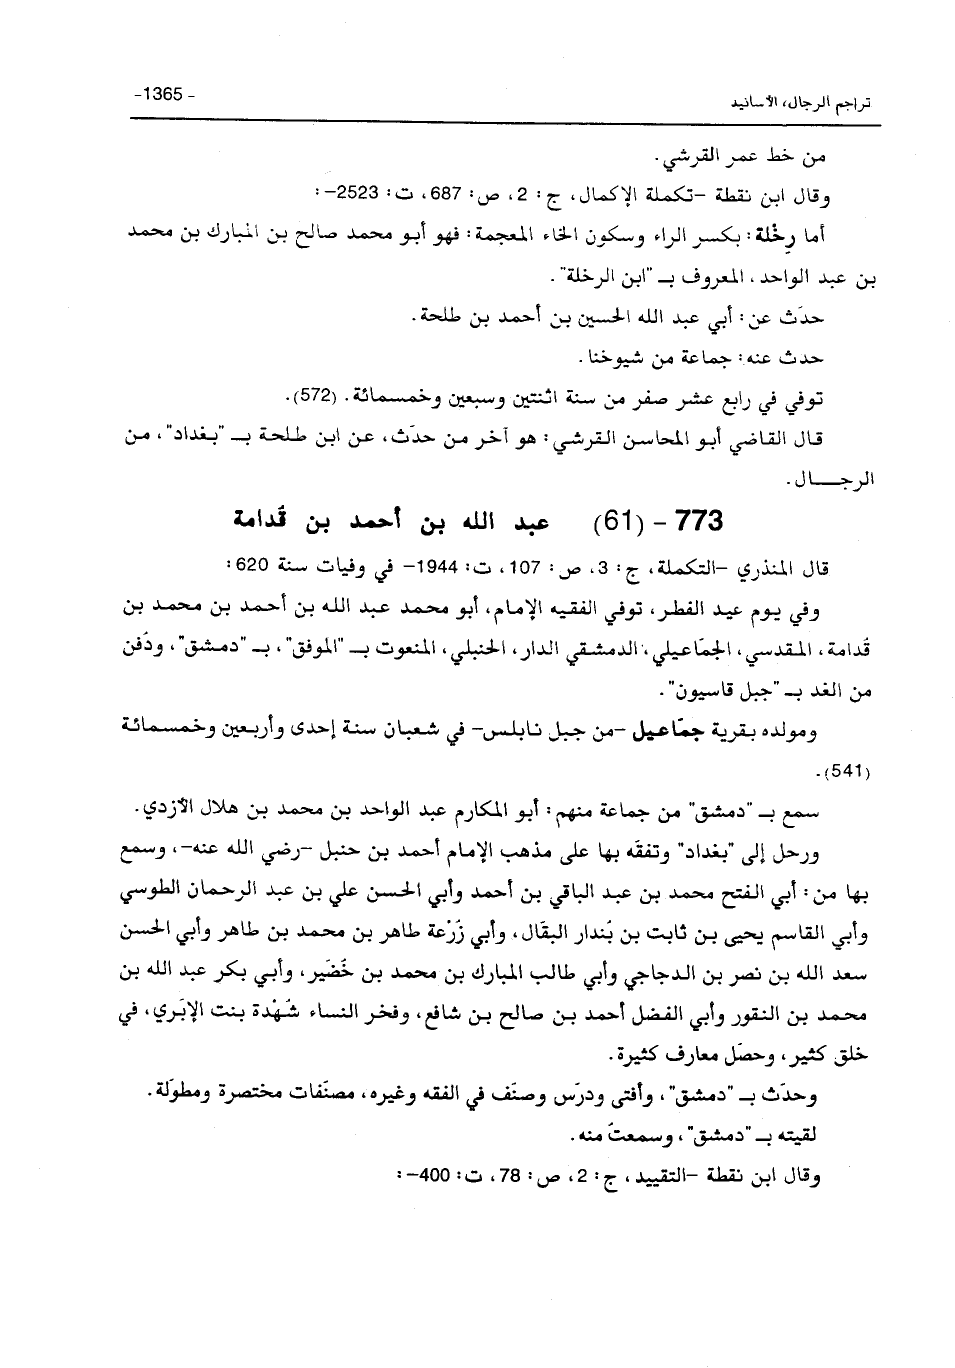 تراجم الرجال، الأسانيد
- 1365-
من خط عمر القرشي.
وقال ابن نقطة –تكملة الإكمال، ج: 2، ص: 687، ت: 2523–:
أما رِخْلة: بكسر الراء وسكون الخاء المعجمة: فهو أبو محمد صالح بن المبارك بن محمد
بن عبد الواحد، المعروف بـ "ابن الرخلة".
حدّث عن: أبي عبد الله الحسين بن أحمد بن طلحة.
حدث عنه: جماعة من شيوخنا.
توفي في رابع عشر صفر من سنة اثنتين وسبعين وخمسمائة. (572).
قال القاضي أبو المحاسن القرشي: هو آخر من حدّث، عن ابن طلحة بـ "بغداد"، من
الرجـــال.
773 – (61) عبد الله بن أحمد بن قُدامة
قال المنذري –التكملة، ج: 3، ص: 107، ت: 1944– في وفيات سنة 620:
وفي يوم عيد الفطر، توفي الفقيه الإمام، أبو محمد عبد الله بن أحمد بن محمد بن
قُدامة، المقدسي، الجمّاعيلي، الدمشقي الدار، الحنبلي، المنعوت بـ "الموفق"، بـ "دمشق"، ودُفن
من الغد بـ "جبل قاسيون".
ومولده بقرية جمّاعيل –من جبل نابلس– في شعبان سنة إحدى وأربعين وخمسمائة
(541).
سمع بـ "دمشق" من جماعة منهم: أبو المكارم عبد الواحد بن محمد بن هلال الأزدي.
ورحل إلى "بغداد" وتفقّه بها على مذهب الإمام أحمد بن حنبل –رضي الله عنه–، وسمع
بها من: أبي الفتح محمد بن عبد الباقي بن أحمد وأبي الحسن علي بن عبد الرحمان الطوسي
وأبي القاسم يحيى بن ثابت بن بُندار البقّال، وأبي زُرْعة طاهر بن محمد بن طاهر وأبي الحسن
سعد الله بن نصر بن الدجاجي وأبي طالب المبارك بن محمد بن خُضَير، وأبي بكر عبد الله بن
محمد بن النقور وأبي الفضل أحمد بن صالح بن شافع، وفخر النساء شُهْدة بنت الإبَري، في
خلق كثير، وحصّل معارف كثيرة.
وحدّث بـ "دمشق"، وأفتى ودرّس وصنّف في الفقه وغيره، مصنّفات مختصرة ومطولّة.
لقيته بـ "دمشق"، وسمعتُ منه.
وقال ابن نقطة –التقييد، ج: 2، ص: 78، ت: 400–: